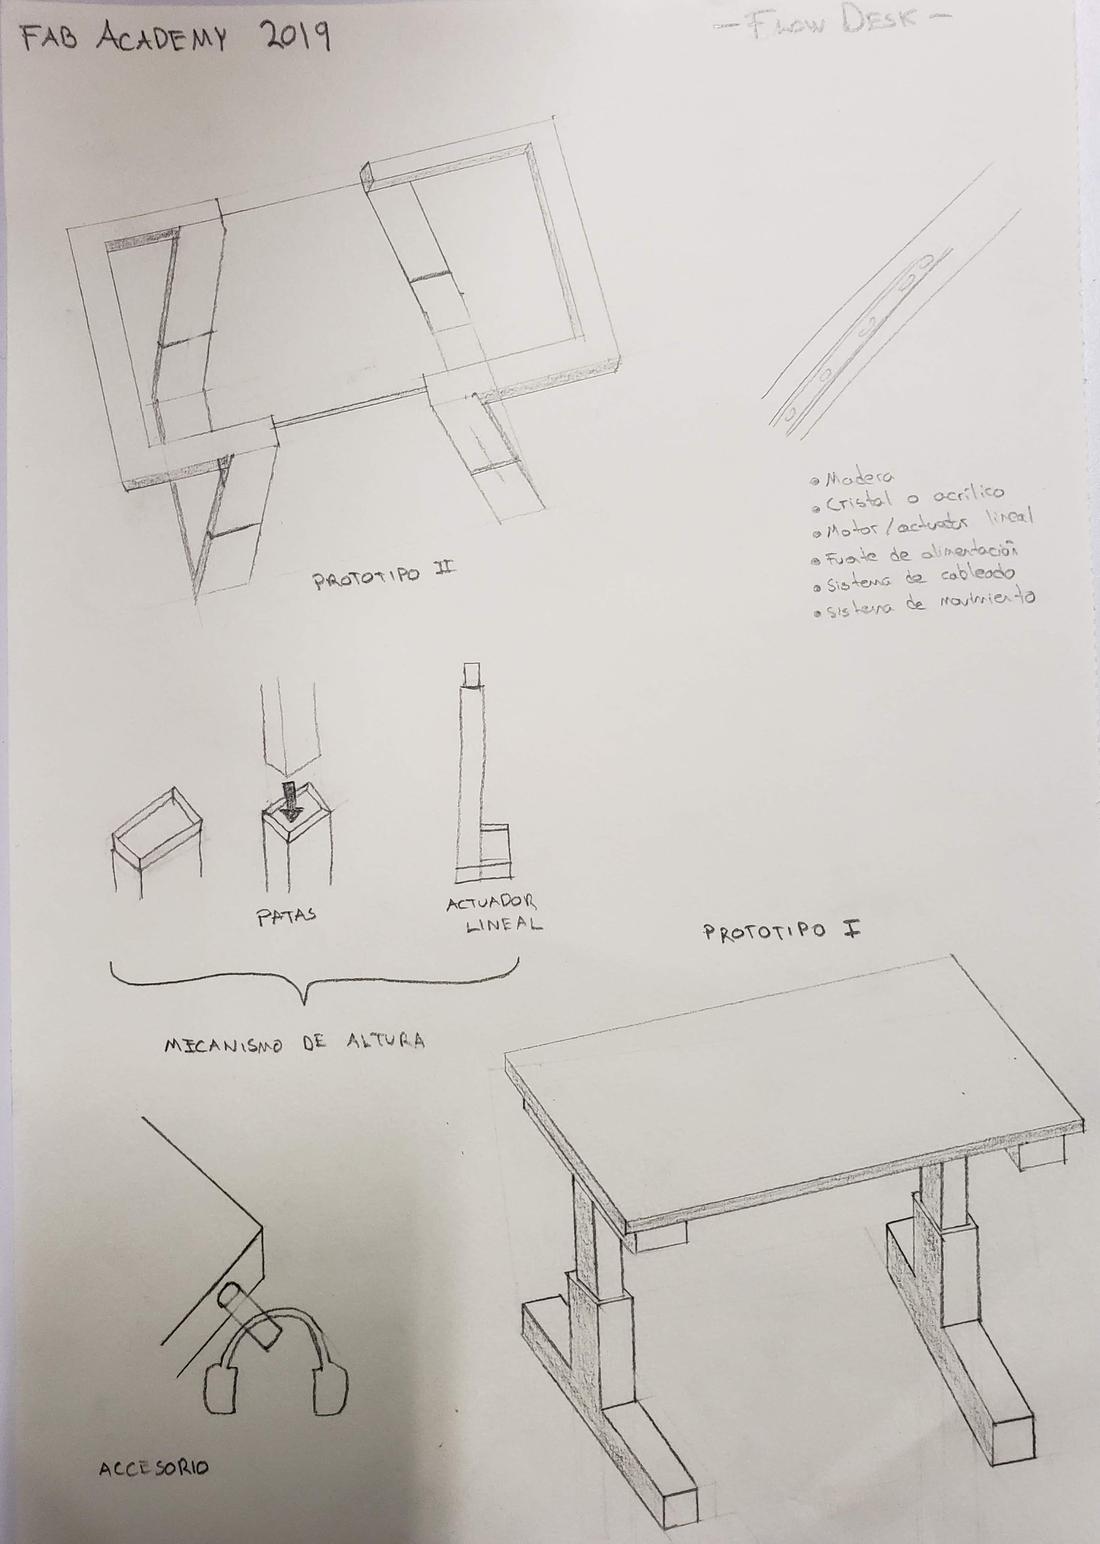 FAB ACADEMY 2019
- FLOW DESK -
• Madera
• Cristal o acrílico
• Motor/actuator lineal
• Fuente de alimentación
• Sistema de cableado
• Sistema de movimiento
PROTOTIPO II
PATAS
ACTUADOR
LINEAL
MECANISMO DE ALTURA
PROTOTIPO I
ACCESORIO